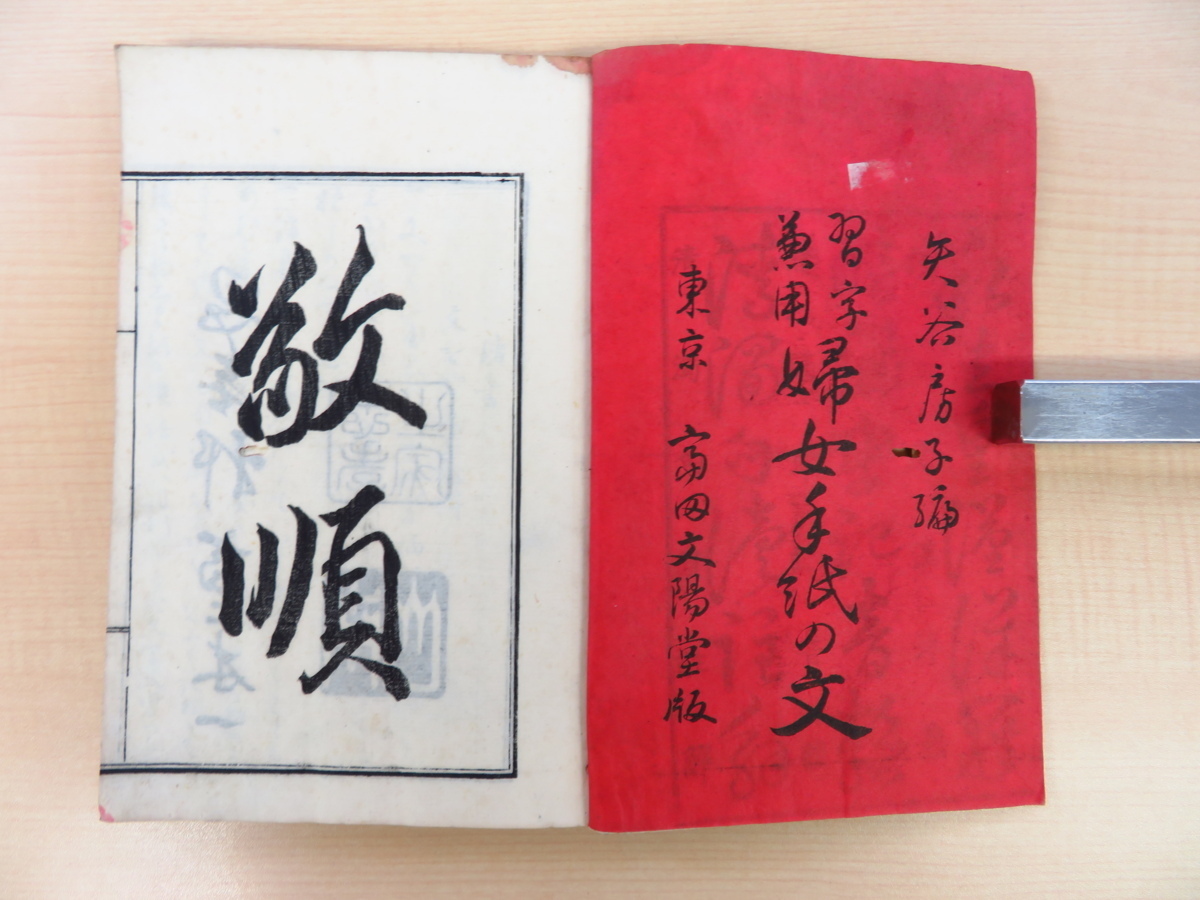 矢谷房子編
習字
兼用
婦女手紙の文
東京 富田文陽堂版
敬順